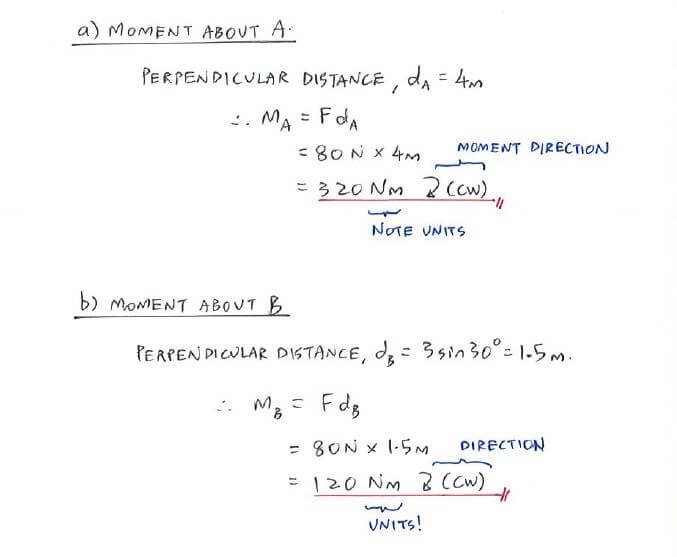 a) MOMENT ABOUT A.
PERPENDICULAR DISTANCE, dA = 4m
∴ MA = F dA
= 80 N × 4m
MOMENT DIRECTION
= 320 Nm ↻ (CW)
NOTE UNITS
b) MOMENT ABOUT B
PERPENDICULAR DISTANCE, dB = 3 sin 30° = 1.5 m.
∴ MB = F dB
= 80N × 1.5m
DIRECTION
= 120 Nm ↻ (CW)
UNITS!